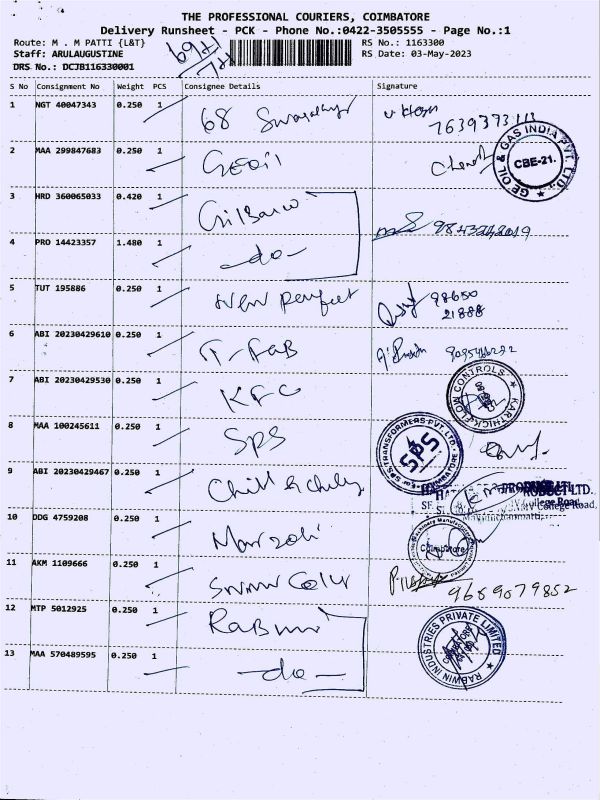 THE PROFESSIONAL COURIERS, COIMBATORE
Delivery Runsheet - PCK - Phone No.:0422-3505555 - Page No.:1
Route: M . M PATTI {L&T} RS No.: 1163300
Staff: ARULAUGUSTINE RS Date: 03-May-2023
DRS No.: DCJB116330001
S No Consignment No Weight PCS Consignee Details Signature
1 NGT 40047343 0.250 1 68
2 MAA 299847683 0.250 1 GEOil
GE OIL & GAS INDIA PVT. LTD.
CBE-21.
3 HRD 360065033 0.420 1 Gilbarco
4 PRO 14423357 1.480 1 -do-
5 TUT 195886 0.250 1 New Perfect 98650
21888
6 ABI 20230429610 0.250 1 T-Fab
7 ABI 20230429530 0.250 1 KFC
KARTHICK FLOW CONTROLS
8 MAA 100245611 0.250 1 SPS
SPS TRANSFORMERS PVT. LTD.
SPS
9 ABI 20230429467 0.250 1
College Road,
10 DDG 4759208 0.250 1
Coimbatore
11 AKM 1109666 0.250 1 9689079852
12 MTP 5012925 0.250 1
13 MAA 570489595 0.250 1 -do-
RABWIN INDUSTRIES PRIVATE LIMITED